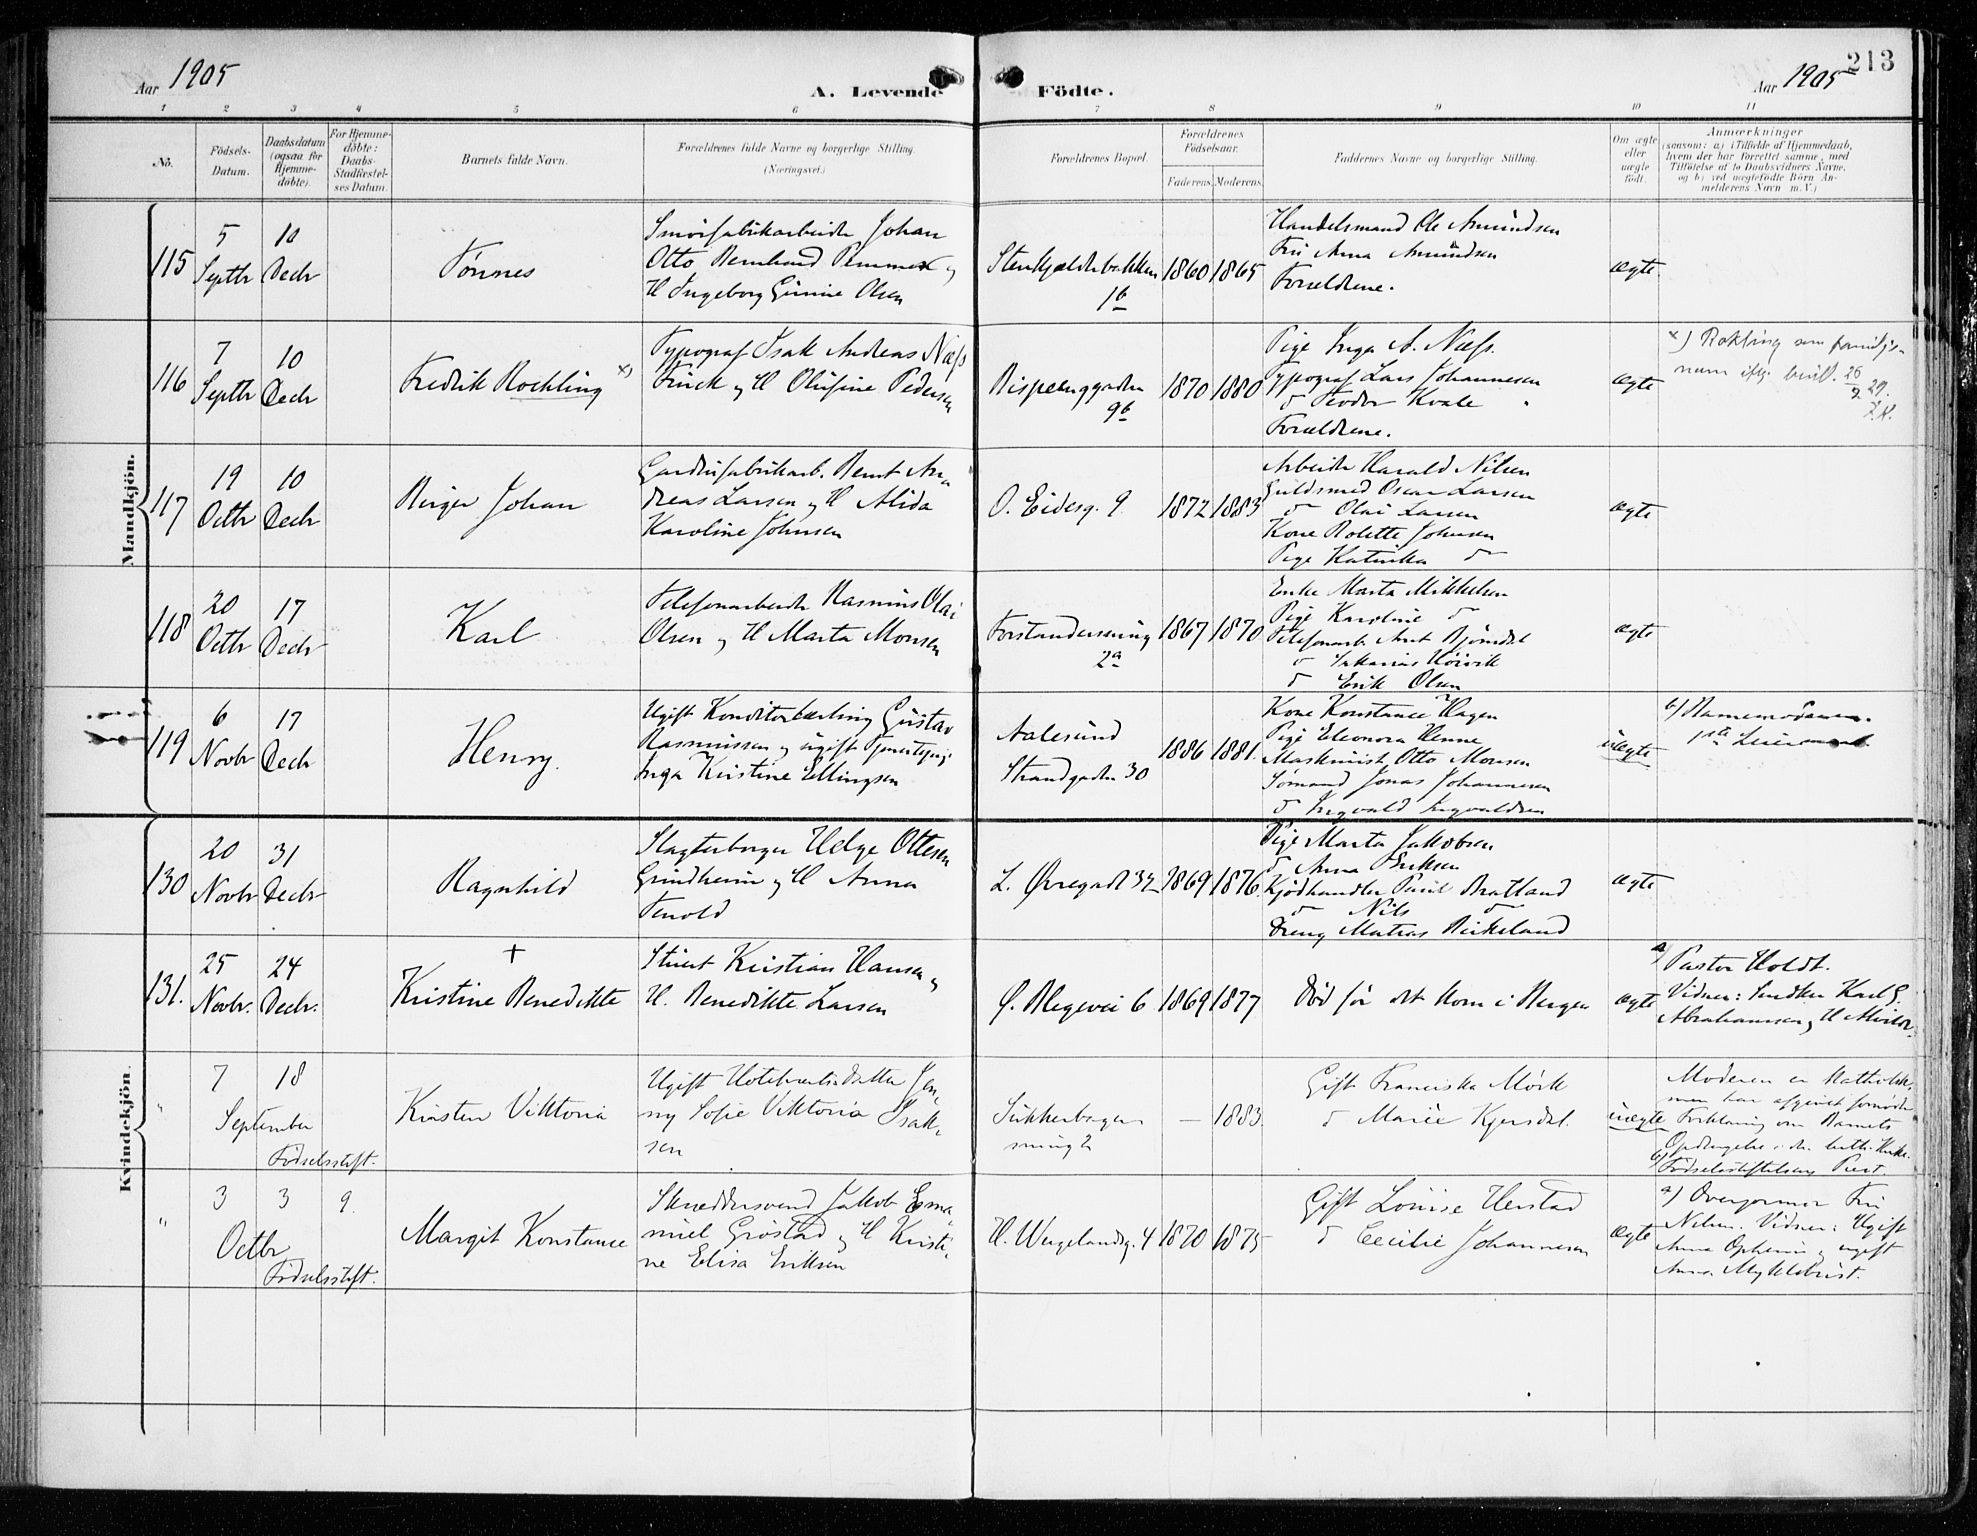 Aar 1905
A. Levende Födte.
Aar 1905
213
1 2 3 4 5 6 7 8 9 10 11
No.
Födsels-
Datum.
Daabsdatum
(ogsaa for
Hjemme-
döbte).
For Hjemme-
döbte:
Daabs-
Stadfæstel-
ses Datum.
Barnets fulde Navn.
Forældrenes fulde Navne og borgerlige Stilling.
(Næringsvei.)
Forældrenes Bopæl.
Forældrenes
Födselsaar.
Faderens. Moderens.
Faddernes Navne og borgerlige Stilling.
Om ægte
eller
uægte
født.
Anmærkninger
(saasom: a) i Tilfælde af Hjemmedaab,
hvem der har forrettet samme, med
Tilföielse af to Daabsvidners Navne.
og b) ved uægtefödte Börn An-
melderens Navn m. V.)
Mandkjön.
115
5
Septbr
10
Decbr
Tönnes
Smörfabrikarbeider Johan
Otto Bernhard Pemmer og
H Ingeborg Gurine Olsen
Stenkjælderbakken
1b
1860 1865
Handelsmand Ole Amundsen
Fru Anna Amundsen
Forældrene.
ægte
116
7
Septbr
10
Decbr
Fredrik Rochling x)
Typograf Isak Andreas Næss
Frick og H Olufine Pedersen
Bispenggaden
9b
1870 1880
Pige Inga A. Næss.
Typograf Lars Johannesen
do Teodor Kvale
Forældrene.
ægte
x) Rokling som familje-
navn iflg. bevill. 26/9 29.
117
19
Octbr
10
Decbr
Birger Johan
Gardinfabrikarb. Bernt An
dreas Larsen og H Alida
Karoline Johnsen
O. Eidesg. 9
1872 1883
Arbeider Harald Nilsen
Guldsmed Oscar Larsen
do Olai Larsen
Kone Rolette Johnsen
Pige Katinka do
ægte
118
20
Octbr
17
Decbr
Karl
Telefonarbeider Rasmus Olai
Olsen og H Marta Monsen
Forstandersmug
2a
1867 1870
Enke Marta Mikkelsen
Pige Karoline do
Telefonarb. Arnt Björndal
do Sakarias Höivik
do Erik Olsen
ægte
119
6
Novbr
17
Decbr
Henry.
Ugift Konditorlærling Gustav
Rasmussen og ugift Tjenestepige
Inga Kristine Ellingsen
Aalesund
Strandgaden 30
1886 1881.
Kone Konstance Hagen
Pige Eleonora Henne
Maskinist Otto Monsen
Sömand Jonas Johannesen
do Ingvald Ingvaldsen
uægte
b) Barnemoderen.
1ste Leiermaal.
Kvindekjön.
130
20
Novbr
31
Decbr
Ragnhild
Slagterborger Helge Ottesen
Grindheim og H Anna
Tenold
L. Øvregade 32
1869 1876.
Pige Marta Jakobsen
do Anna Eriksen
Kjödhandler Paul Bratland
do Nils do
Dreng Matias Birkeland
ægte
131.
25
Novbr.
24
Decbr.
+
Kristine Benedikte
Stuert Kristian Hansen og
H. Benedikte Larsen
Ø. Blegevei 6
1869 1877
Död för det kom i Kirken
ægte
a) Pastor Holdt.
Vidner: Snedker Karl G.
Abrahamsen og H
"
7 18
September
Födselsstift.
Kirsten Viktoria
Ugift Hotelværtsdatter Jen
ny Sofie Viktoria Isak-
sen
Sukkerhuge
smug 2
– 1883.
Gift Franciska Mörk
do Marie Kjersdal.
uægte
Moderen er Katholsk,
men har afgivet fornöden
Erklæring om Barnets
Opdragelse i den luth. Kirke.
b) Födselsstiftelsens Prest.
"
3 3 9.
Octbr
Födselsstift.
Margit Konstance
Skræddersvend Jakob Ema
nuel Gröstad og H Kristi-
ne Elisa Eriksen
H. Wergelandsg. 4
1870 1875
Gift Louise Herstad
do Cecilie Johannesen
ægte
a) Overjormor Fru
Nilsen. Vidner: Ugift
Anna Opheim og ugift
Anna Myklebust.